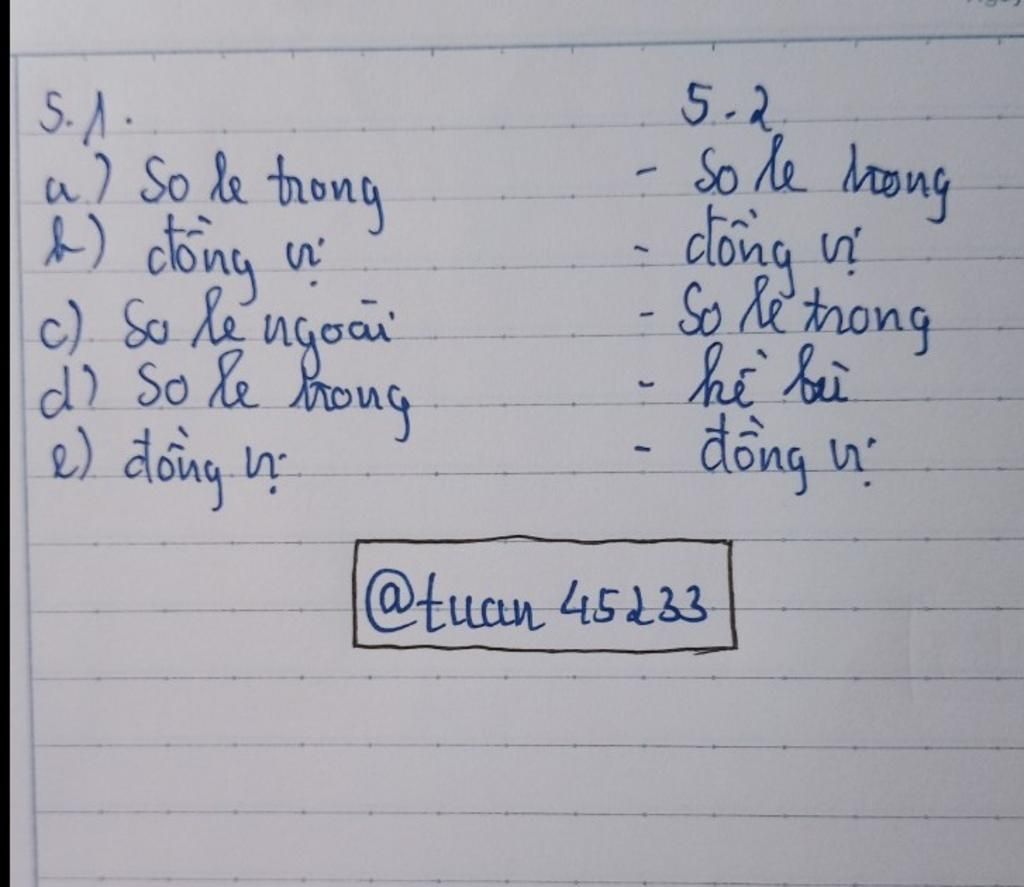 5.1.
a) So le trong
b) đồng vị
c) So le ngoài
d) So le trong
e) đồng vị
5.2
- So le trong
- đồng vị
- So le trong
- kề bù
- đồng vị
@tuan 45233